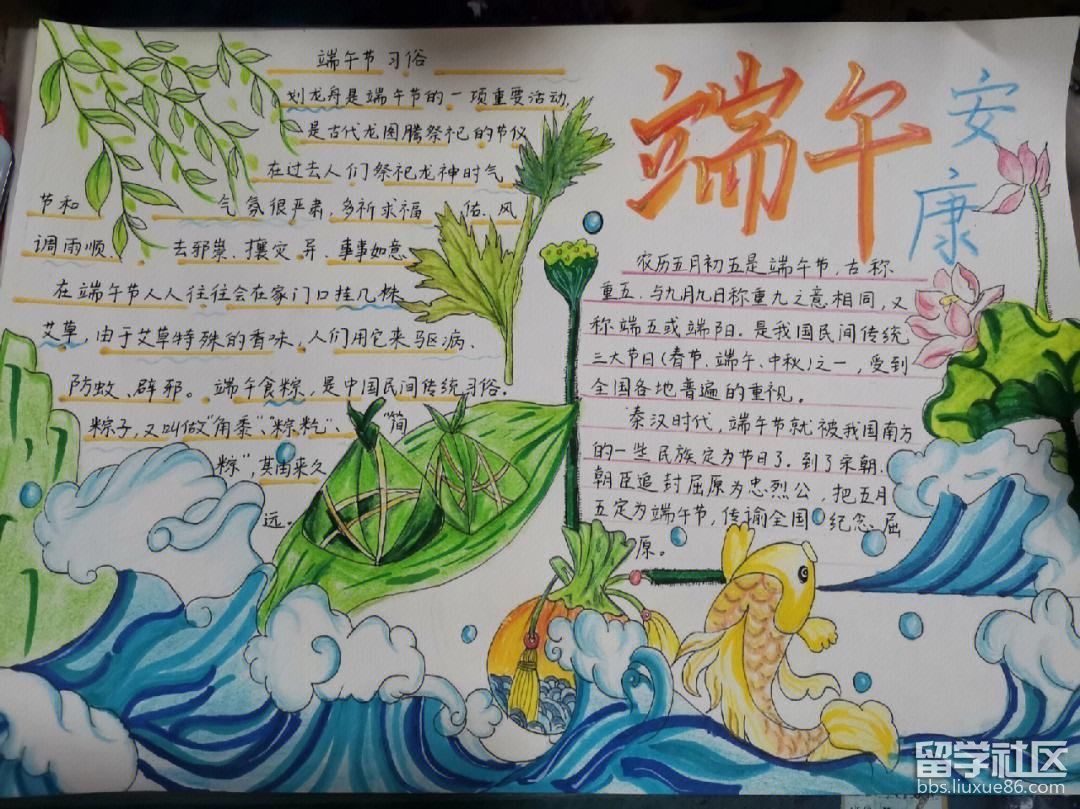 端午节习俗
划龙舟是端午节的一项重要活动,
是古代龙图腾祭祀的节仪
在过去人们祭祀龙神时气
节和 气氛很严肃,多祈求福 佑、风
调雨顺、 去邪祟、攘灾异、事事如意
在端午节人人往往会在家门口挂几株
艾草,由于艾草特殊的香味,人们用它来驱病、
防蚊、辟邪。端午食粽,是中国民间传统习俗。
粽子,又叫做"角黍"、"粽籺"、 "筒
粽"其由来久
远。
端午
安康
农历五月初五是端午节,古称
重五,与九月九日称重九之意相同,又
称端五或端阳。是我国民间传统
三大节日(春节、端午、中秋)之一,受到
全国各地普遍的重视。
秦汉时代,端午节就被我国南方
的一些民族定为节日了。到了宋朝,
朝臣追封屈原为忠烈公,把五月
五定为端午节,传谕全国 纪念屈
原。
留学社区
bbs.liuxue86.com